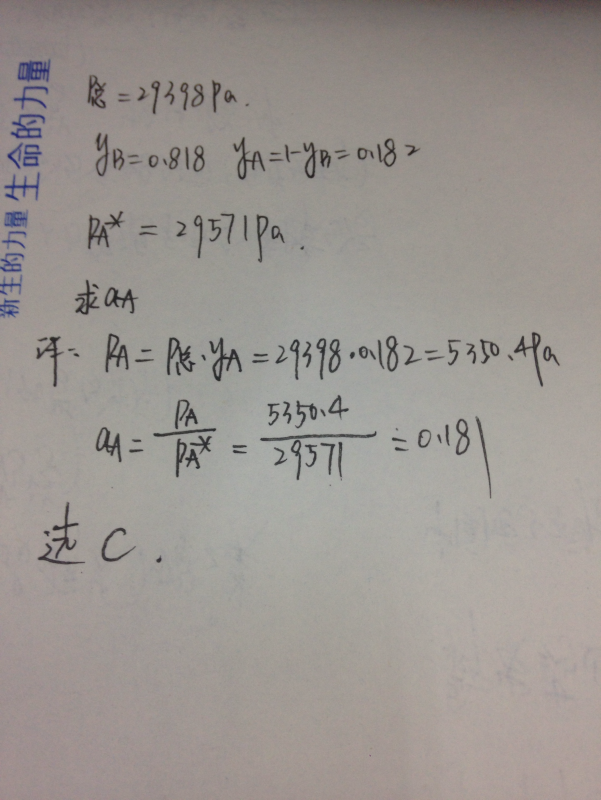 新生的力量 生命的力量
P总=29398Pa.
yB=0.818 yA=1-yB=0.182
PA* = 29571Pa.
求aA
PA=P总·yA=29398·0.182=5350.4Pa
aA= PA/PA* = 5350.4/29571 ≐0.181
选 C.